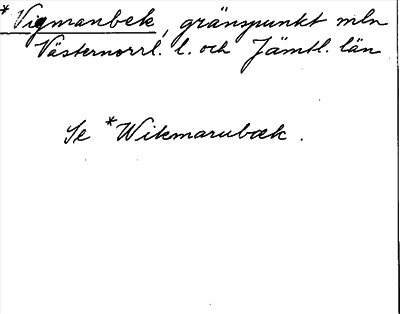 * Vigmanbek, gränspunkt mln
Västernorrl. l. och Jämtl. län
Se *Wikmarubæk.